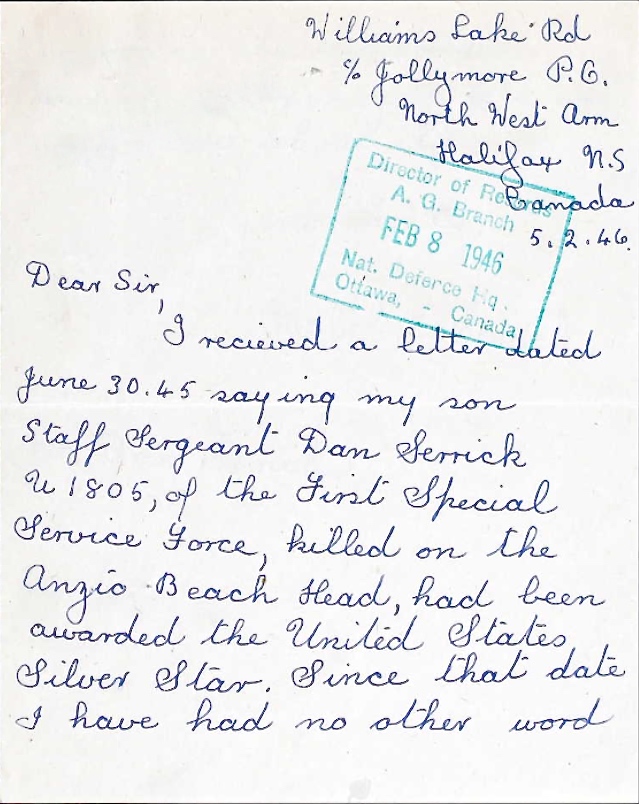 Williams Lake Rd
c/o Jollymore P.O.
North West Arm
Halifax N.S
Canada
5.2.46.
Director of Records
A. G. Branch
FEB 8 1946
Nat. Defence Hq.
Ottawa, - Canada
Dear Sir,
I recieved a letter dated
June 30.45 saying my son
Staff Sergeant Dan Serrick
U 1805, of the First Special
Service Force, killed on the
Anzio Beach Head, had been
awarded the United States
Silver Star. Since that date
I have had no other word